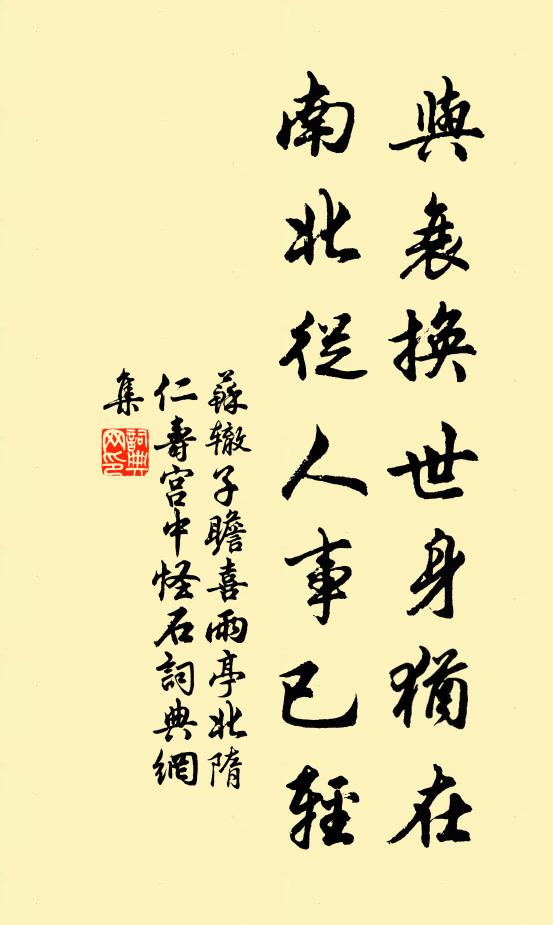 興衰換世身猶在
南北從人事已輕
蘇轍子瞻喜雨亭北隋
仁壽宮中怪石詞典網
集
詞典
网印